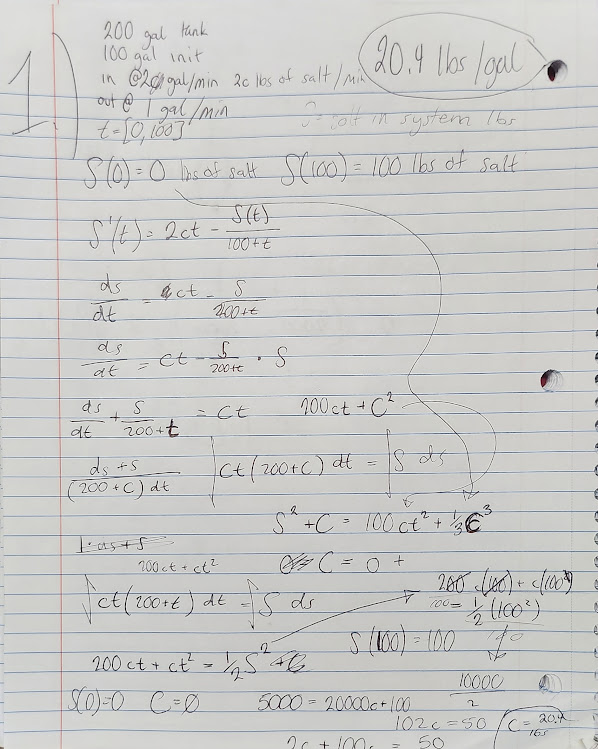 1.)
200 gal tank
100 gal init
in @ 2 gal/min 2c lbs of salt/min
20.4 lbs/gal
out @ 1 gal/min
t=[0,100]
S= salt in system lbs
S(0)=0 lbs of salt S(100)=100 lbs of salt
S'(t)=2ct - S(t)/(100+t)
ds/dt = ct - S/(200+t)
ds/dt = ct - S/(200+t) · S
ds/dt + S/(200+t) = ct 200ct+C²
(ds+S)/((200+C)dt) ∫ct(200+C) dt = ∫S ds
S²+C = 100ct²+⅓C³
200ct+ct² C=0+
∫ct(200+t) dt = ∫S ds
100= ½(100²)
S(100)=100
200ct+ct²=½S²
10000/2
S(0)=0 C=0 5000=20000c+100
102c=50 C=20.4 lbs
2c+100c = 50